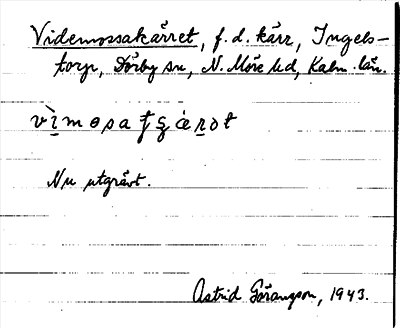 Videmossakärret, f.d. kärr, Ingels-
torp, Dörby sn, N. Möre hd, Kalm. län.
Nu utgrävt.
Astrid Göransson, 1943.